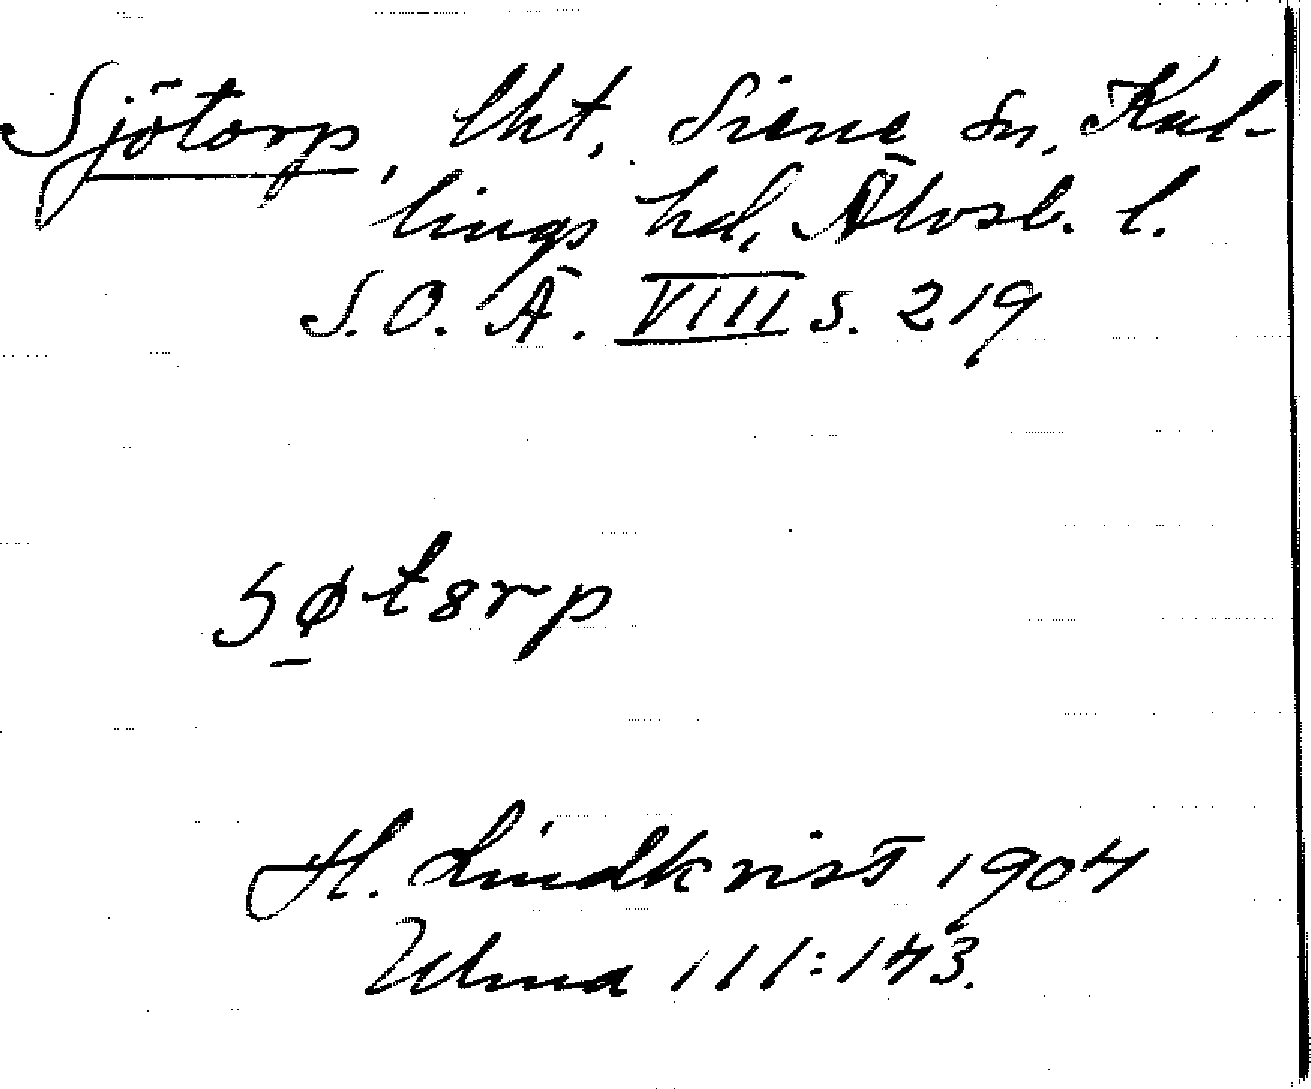 Sjötorp, lht, Siene sn, Kul-
lings hd, Älvsb. l.
S.O.Ä. VIII s. 219
søtørp
H. Lindkvist 1904
Ulma 111:143.